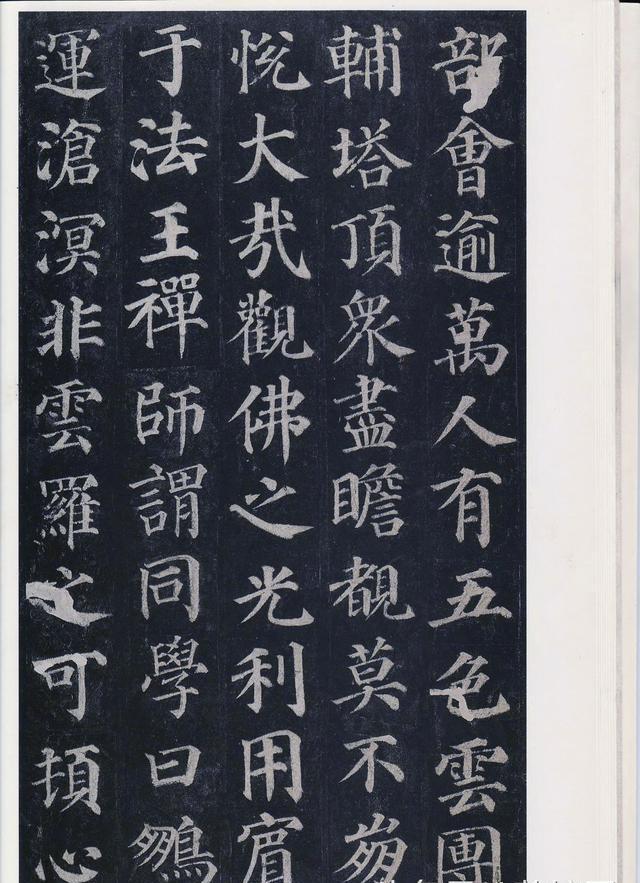 部會逾萬人有五色雲團
輔塔頂衆盡瞻覩莫不崩
悅大哉觀佛之光利用賔
于法王禪師謂同學曰鵬
運滄溟非雲羅之可頓心